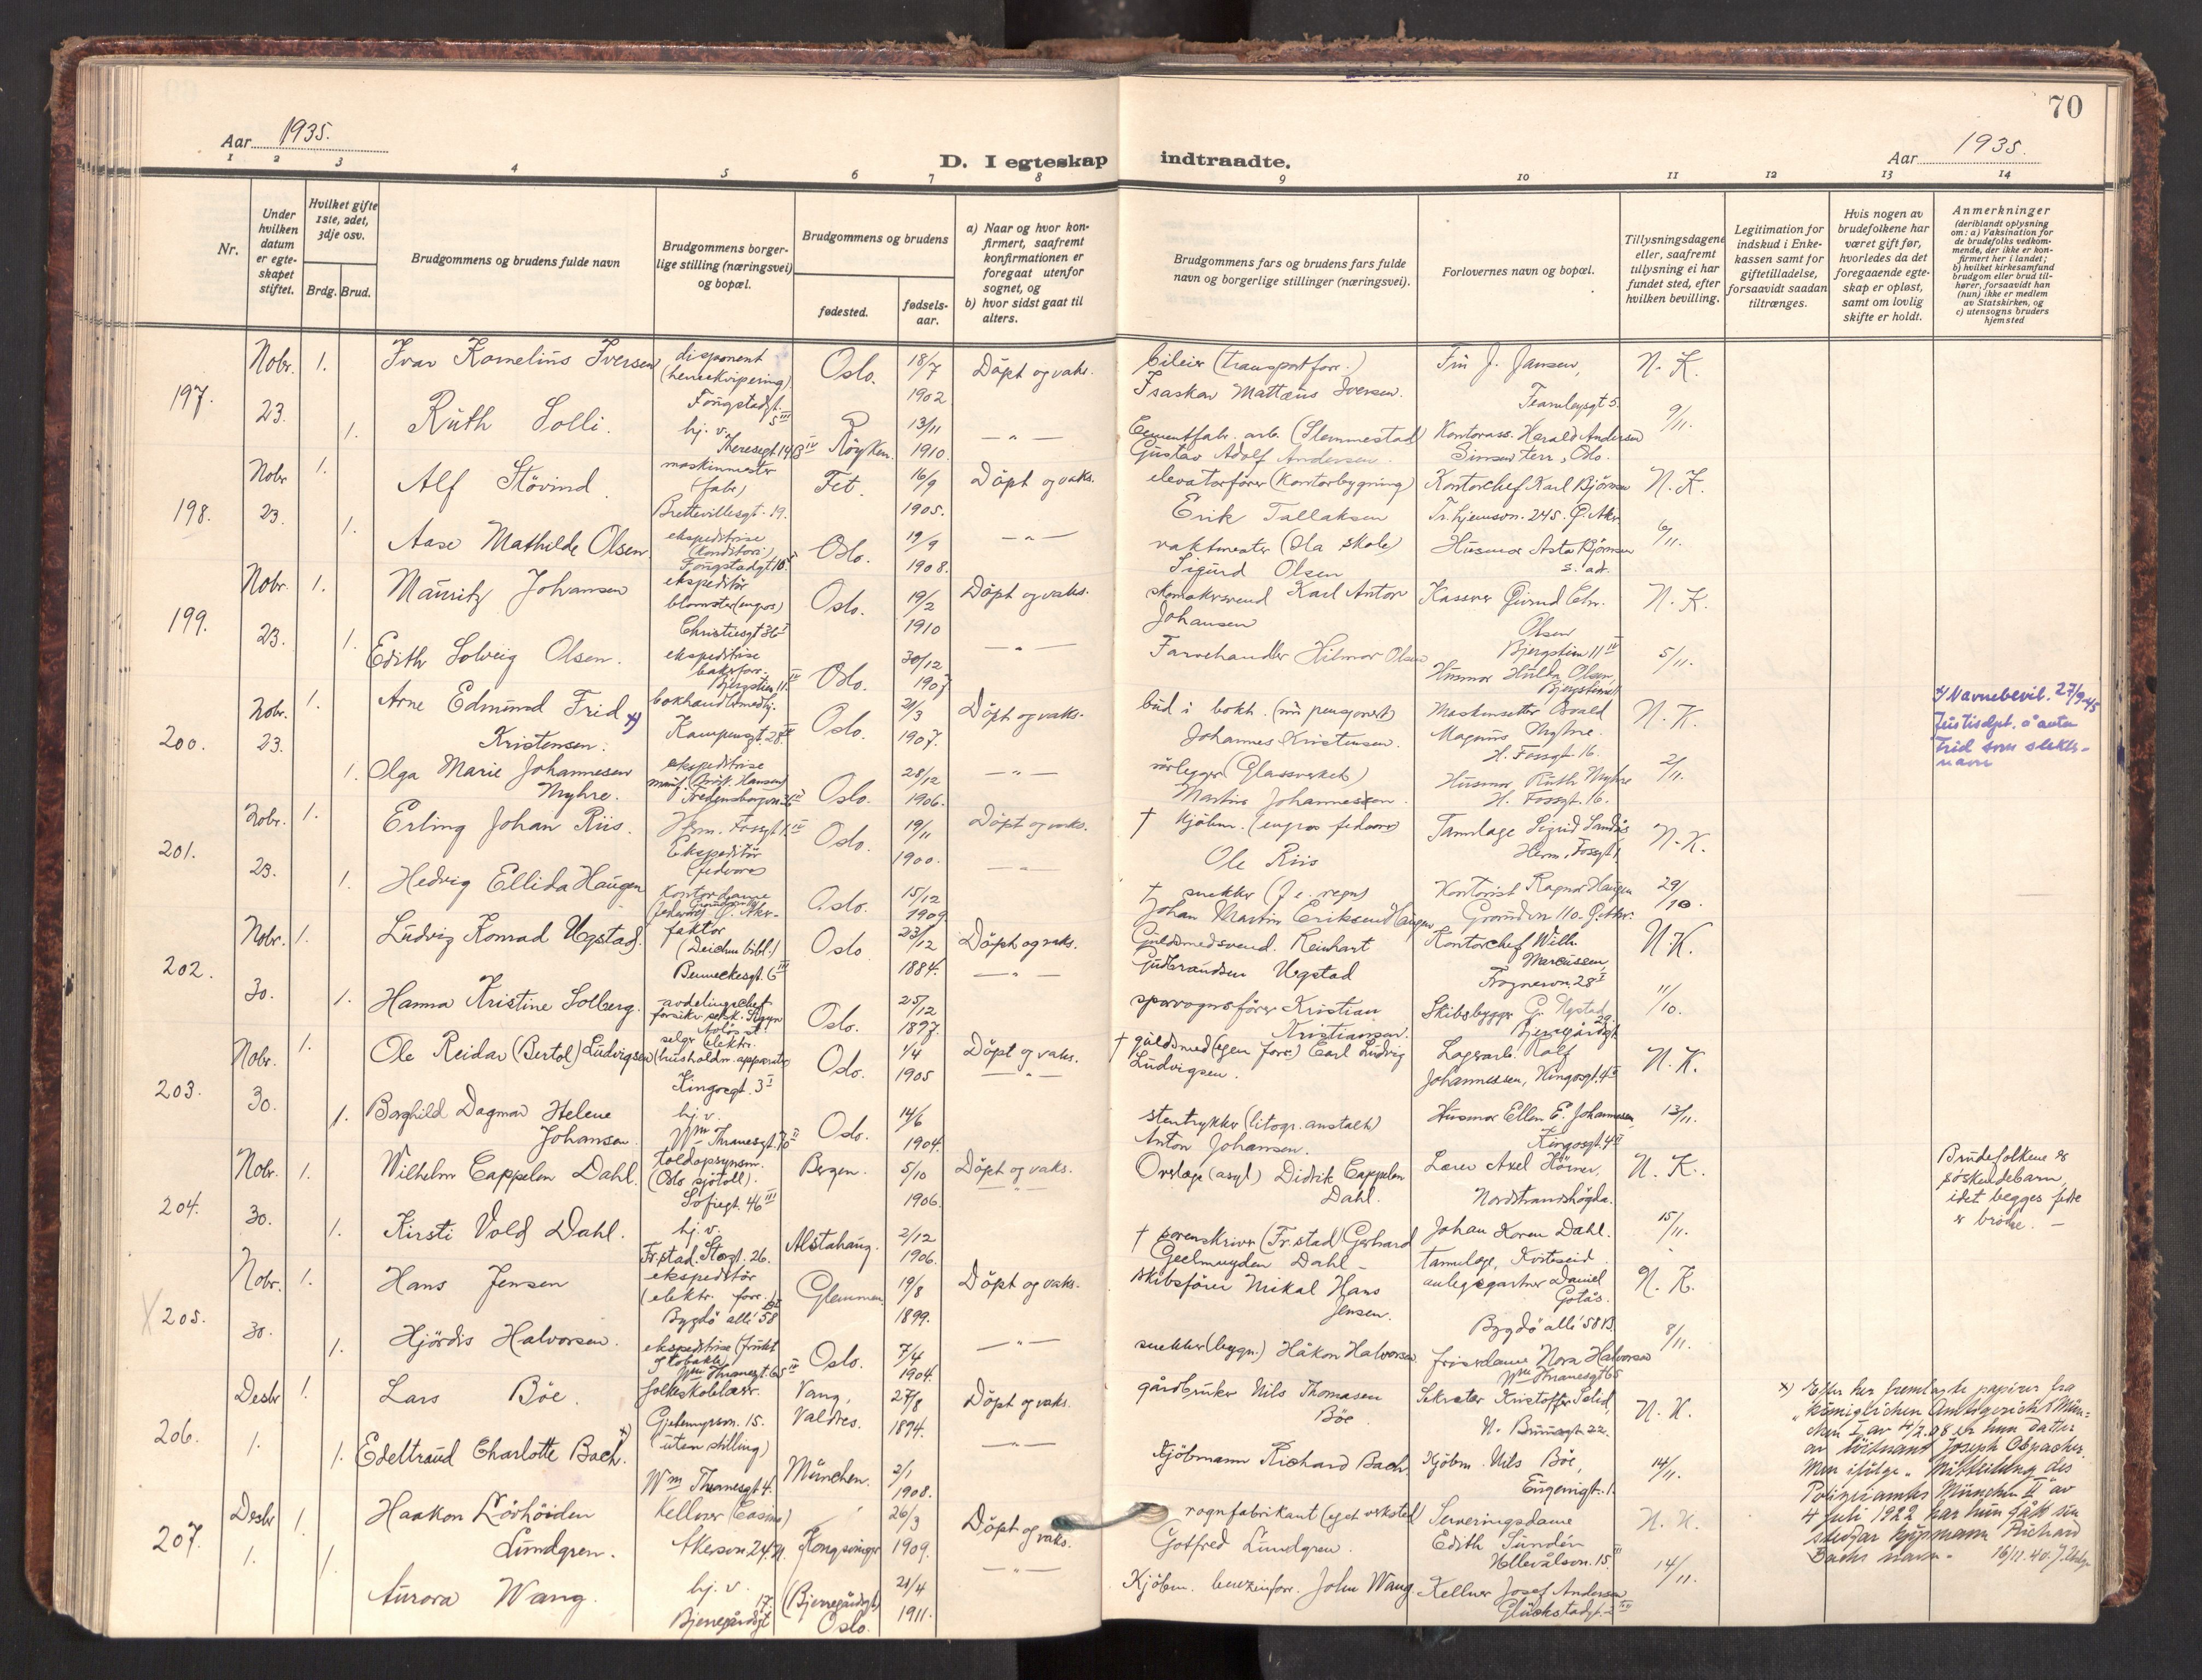 70
Aar 1935.
D. I egteskap indtraadte.
Aar 1935.
1 2 3 4 5 6 7 8 9 10 11 12 13 14
Nr.
Under hvilken datum er egteskapet stiftet.
Hvilket gifte 1ste, 2det, 3dje osv.
Brdg. Brud.
Brudgommens og brudens fulde navn
Brudgommens borgerlige stilling (næringsvei) og bopæl.
Brudgommens og brudens
fødested.
fødselsaar.
a) Naar og hvor konfirmert, saafremt konfirmationen er foregaat utenfor sognet, og
b) hvor sidst gaat til alters.
Brudgommens fars og brudens fars fulde navn og borgerlige stillinger (næringsvei).
Forlovernes navn og bopæl.
Tillysningsdagene eller, saafremt tillysning ei har fundet sted, efter hvilken bevilling.
Legitimation for indskud i Enkekassen samt for giftetilladelse, forsaavidt saadan tiltrænges.
Hvis nogen av brudefolkene har været gift før, hvorledes da det foregaaende egteskap er opløst, samt om lovlig skifte er holdt.
Anmerkninger (deriblandt oplysning om: a) Vaksination for de brudefolks vedkommende, der ikke er konfirmert her i landet; b) hvilket kirkesamfund brudgom eller brud tilhører, forsaavidt han (hun) ikke er medlem av Statskirken, og c) utensogns bruders hjemsted
197. Nobr. 23. 1. Ivar Kornelius Iversen disponent (herreekvipering) Fougstadgt. 5 III Oslo. 18/7 1902 Döpt og vaks. bileier (transportforr.) Isaskar Mattæus Iversen. J. Jansen, N. K.
1. Ruth Solli. hj. v. Theresegt. 14 B IV Röyken. 13/11 1910. — " — Cementfabr. arb. (Slemmestad) Gustav Adolf Andersen. Kontorass. Herald Andersen Sinsen terr., Oslo. 9/11.
198. Nobr 23. 1. Alf Stövind. maskinmester (fabr.) Brettevillesgt. 19. Fet. 16/9 1905. Döpt og vaks. elevatorfører (Kontorbygning) Erik Tallaksen Kontorchef Karl Björnsen Tr.hjemsvn. 245. Ö. Aker N. K.
1. Aase Mathilde Olsen ekspeditrise (Konditori) Fougstadgt. 10 Oslo. 19/9 1908. — " — vaktmester (Ila skole) Sigurd Olsen Husmor Asta Björnsen s. ad. 6/11.
199. Nobr. 23. 1. Mauritz Johansen ekspeditör blomster (engros) Christiesgt 36 I Oslo. 19/2 1910 Döpt og vaks. skomakersvend Karl Anton Johansen Kasserer Öivind Chr. Olsen Bjergstien 11 IV N. K.
1. Edith Solveig Olsen. ekspeditrise bakerforr. Bjergstien 11 IV Oslo. 30/12 1907 — " — Farvehandler Hilmar Olsen Husmor Hulda Olsen, Bjergstien 11 5/11.
200. Nobr. 23. 1. Arne Edmund Frid x) Kristensen. bokhandlermedhj. Kampensgt. 28 II Oslo. 21/3 1907. Döpt og vaks. bud i bokh. (nu pensjonert) Johannes Kristensen. Maskinsetter Osvald Magnus Myhre. H. Fossgt. 16. N. K.
x) Navnebevil. 27/9 45 Justisdpt. å anta Frid som slektsnavn
1. Olga Marie Johannesen Myhre. ekspeditrise manuf. (Brödr. Hansen) Fredensborgvn. 36 IV Oslo. 28/12 1906. — " — rörlegger (Glassverket) Martin Johannessen. Husmor Ruth Myhre H. Fossgt. 16. 2/11.
201. Nobr. 23. 1. Erling Johan Riis. Hm. Fossgt 1 IV Ekspeditör (fedvare) Oslo. 19/11 1900. Döpt og vaks. † Kjöbm. (engros fedvare) Ole Riis Tannlæge Sigrid Sandås Herm. Fossgt. 1 N. K.
1. Hedvig Ellida Haugen Kontordame Oslo. 15/12 1909 — " — † snekker (f. e. regn) Johan Martin Eriksen Haugen Kontorist Ragnar Haugen Grenseveien 110. Ö. Aker. 29/10.
202. Nobr. 30. 1. Ludvig Konrad Ugstad. faktor (Deichm. bibl.) Benneckesgt. 6 III Oslo 23/12 1884. Döpt og vaks. Guldsmedsvend. Reinhart Gudbrandsen Ugstad Kontorchef Wilh. Marcussen, Frognervn. 28 I N. K.
1. Hanna Kristine Solberg. avdelingschef forsikr. selsk. Sigyn Oslo. 25/12 1897. — " — sporvognsfører Kristian Kristiansen. Skibsbygger G. Ugstad Bjerregårdsgt. 29. 11/10.
203. Nobr. 30. 1. Ole Reidar (Bertol) Ludvigsen selger (elektr. husholdn. apparater) Kingosgt. 3 I Oslo. 1/4 1905 Döpt og vaks. † guldsmed (egen forr.) Carl Ludvig Ludvigsen. Lagerarb. Rolf Johannessen, Kingosgt. 4 II N. K.
1. Borghild Dagmar Helene Johansen hj. v. Wm Thranesgt. 70 II Oslo. 14/6 1904. — " — stentrykker (litogr. anstalt) Anton Johansen. Husmor Ellen E. Johannessen, Kingosgt. 4 II 13/11.
204. Nobr. 30. 1. Wilhelm Cappelen Dahl. toldopsynsm. (Oslo sjötoll). Sofiegt. 46 III Bergen. 5/10 1906. Döpt og vaks. Overlæge (asyl) Didrik Cappelen Dahl. Lærer Axel Körner, Nordstrandshögda. N. K.
Brudefolkene er søskendebarn, idet begges fedre er brödre. —
1. Kirsti Vold Dahl. hj. v. Fr.stad. Storgt. 26. Alstahaug. 2/12 1906. — " — † sorenskriver (Fr.stad) Gerhard Geelmuyden Dahl — Johan Koren Dahl. tannlæge, Korteseid 15/11.
205. Nobr. 30. 1. Hans Jensen ekspeditör (elektr. forr.) Bygdö allé 58 Glemmen 19/8 1899. Döpt og vaks. Skibsfører Mikal Hans Jensen. anlegsgartner Daniel Gotås. Bygdö allé 58 B. N. K.
1. Hjördis Halvorsen. ekspeditrise (frukt og tobakk) Wm Thranesgt. 65 IV Oslo. 7/4 1904. — " — snekker (bygn.) Håkon Halvorsen. frisördame Nora Halvorsen Wm Thranesgt 65 8/11.
206. Desbr 1. 1. Lars Böe. folkeskolelærer. Gjetemyrsvn. 15. Vang, Valdres. 27/8 1894. Döpt og vaks. gårdbruker Nils Thomasen Böe Sekretær Kristoffer Selid, N. Bruunsgt. 22. N. K.
1. Edeltraud Charlotte Bach. x) (uten stilling) Wm Thranesgt 4. München. 2/1 1908. — " — Kjöbmann Richard Bach Kjöbm. Nils Böe, Eugeniigt. 1. 14/11.
x) Efter her fremlagte papirer fra "königlichen Amtsgericht München I av 4/2. 08 er hun datter av löitnant Joseph Obpacher. Men ifölge "Mitteilung des Polizeiamts München II av 4 juli 1922 har hun fått sin stedfar kjöpmann Richard Bachs navn. — 16/11. 40.
207. Desbr 1. 1. Haakon Lövhöiden Lundgren. Kellner (Casino) Akersvn. 24 Kongsvinger 26/3 1909. Döpt og vaks. vognfabrikant (eget verksted) Gotfred Lundgren. Serveringsdame Edith Sundén Ullevålsvn. 15 III N. K.
1. Aurora Wang. hj. v. Bjerregårdsgt 17. (Bjerregårdsgt) Oslo. 21/4 1911. — " — Kjöbm. benzinforr. John Wang. Kellner Josef Andersen Glückstadgt. 2 14/11.